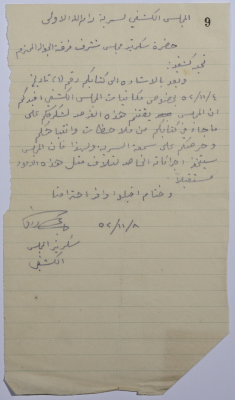 9
المجلس الكشفي لسرية رام الله الاولى
حضرة سكرتير مجلس شرف فرقة الجوال المحترم
تحية كشفية
وبعد بالاشارة الى كتابكم رقم تاريخ
٥٢/١١/٨ بخصوص مكاتبات المجلس الكشفي افيدكم
ان المجلس يغتنم هذه الفرصة ليشكركم على
ما جاء في كتابكم من ملاحظات
وحرصكم على سمعة السرية ولهذا فان المجلس
سيتخذ اجراءاته الخاصة لتلافي مثل هذه
مستقبلا
وختاما اقبلوا وافر احترامنا
٥٢/١١/٨
سكرتير المجلس
الكشفي